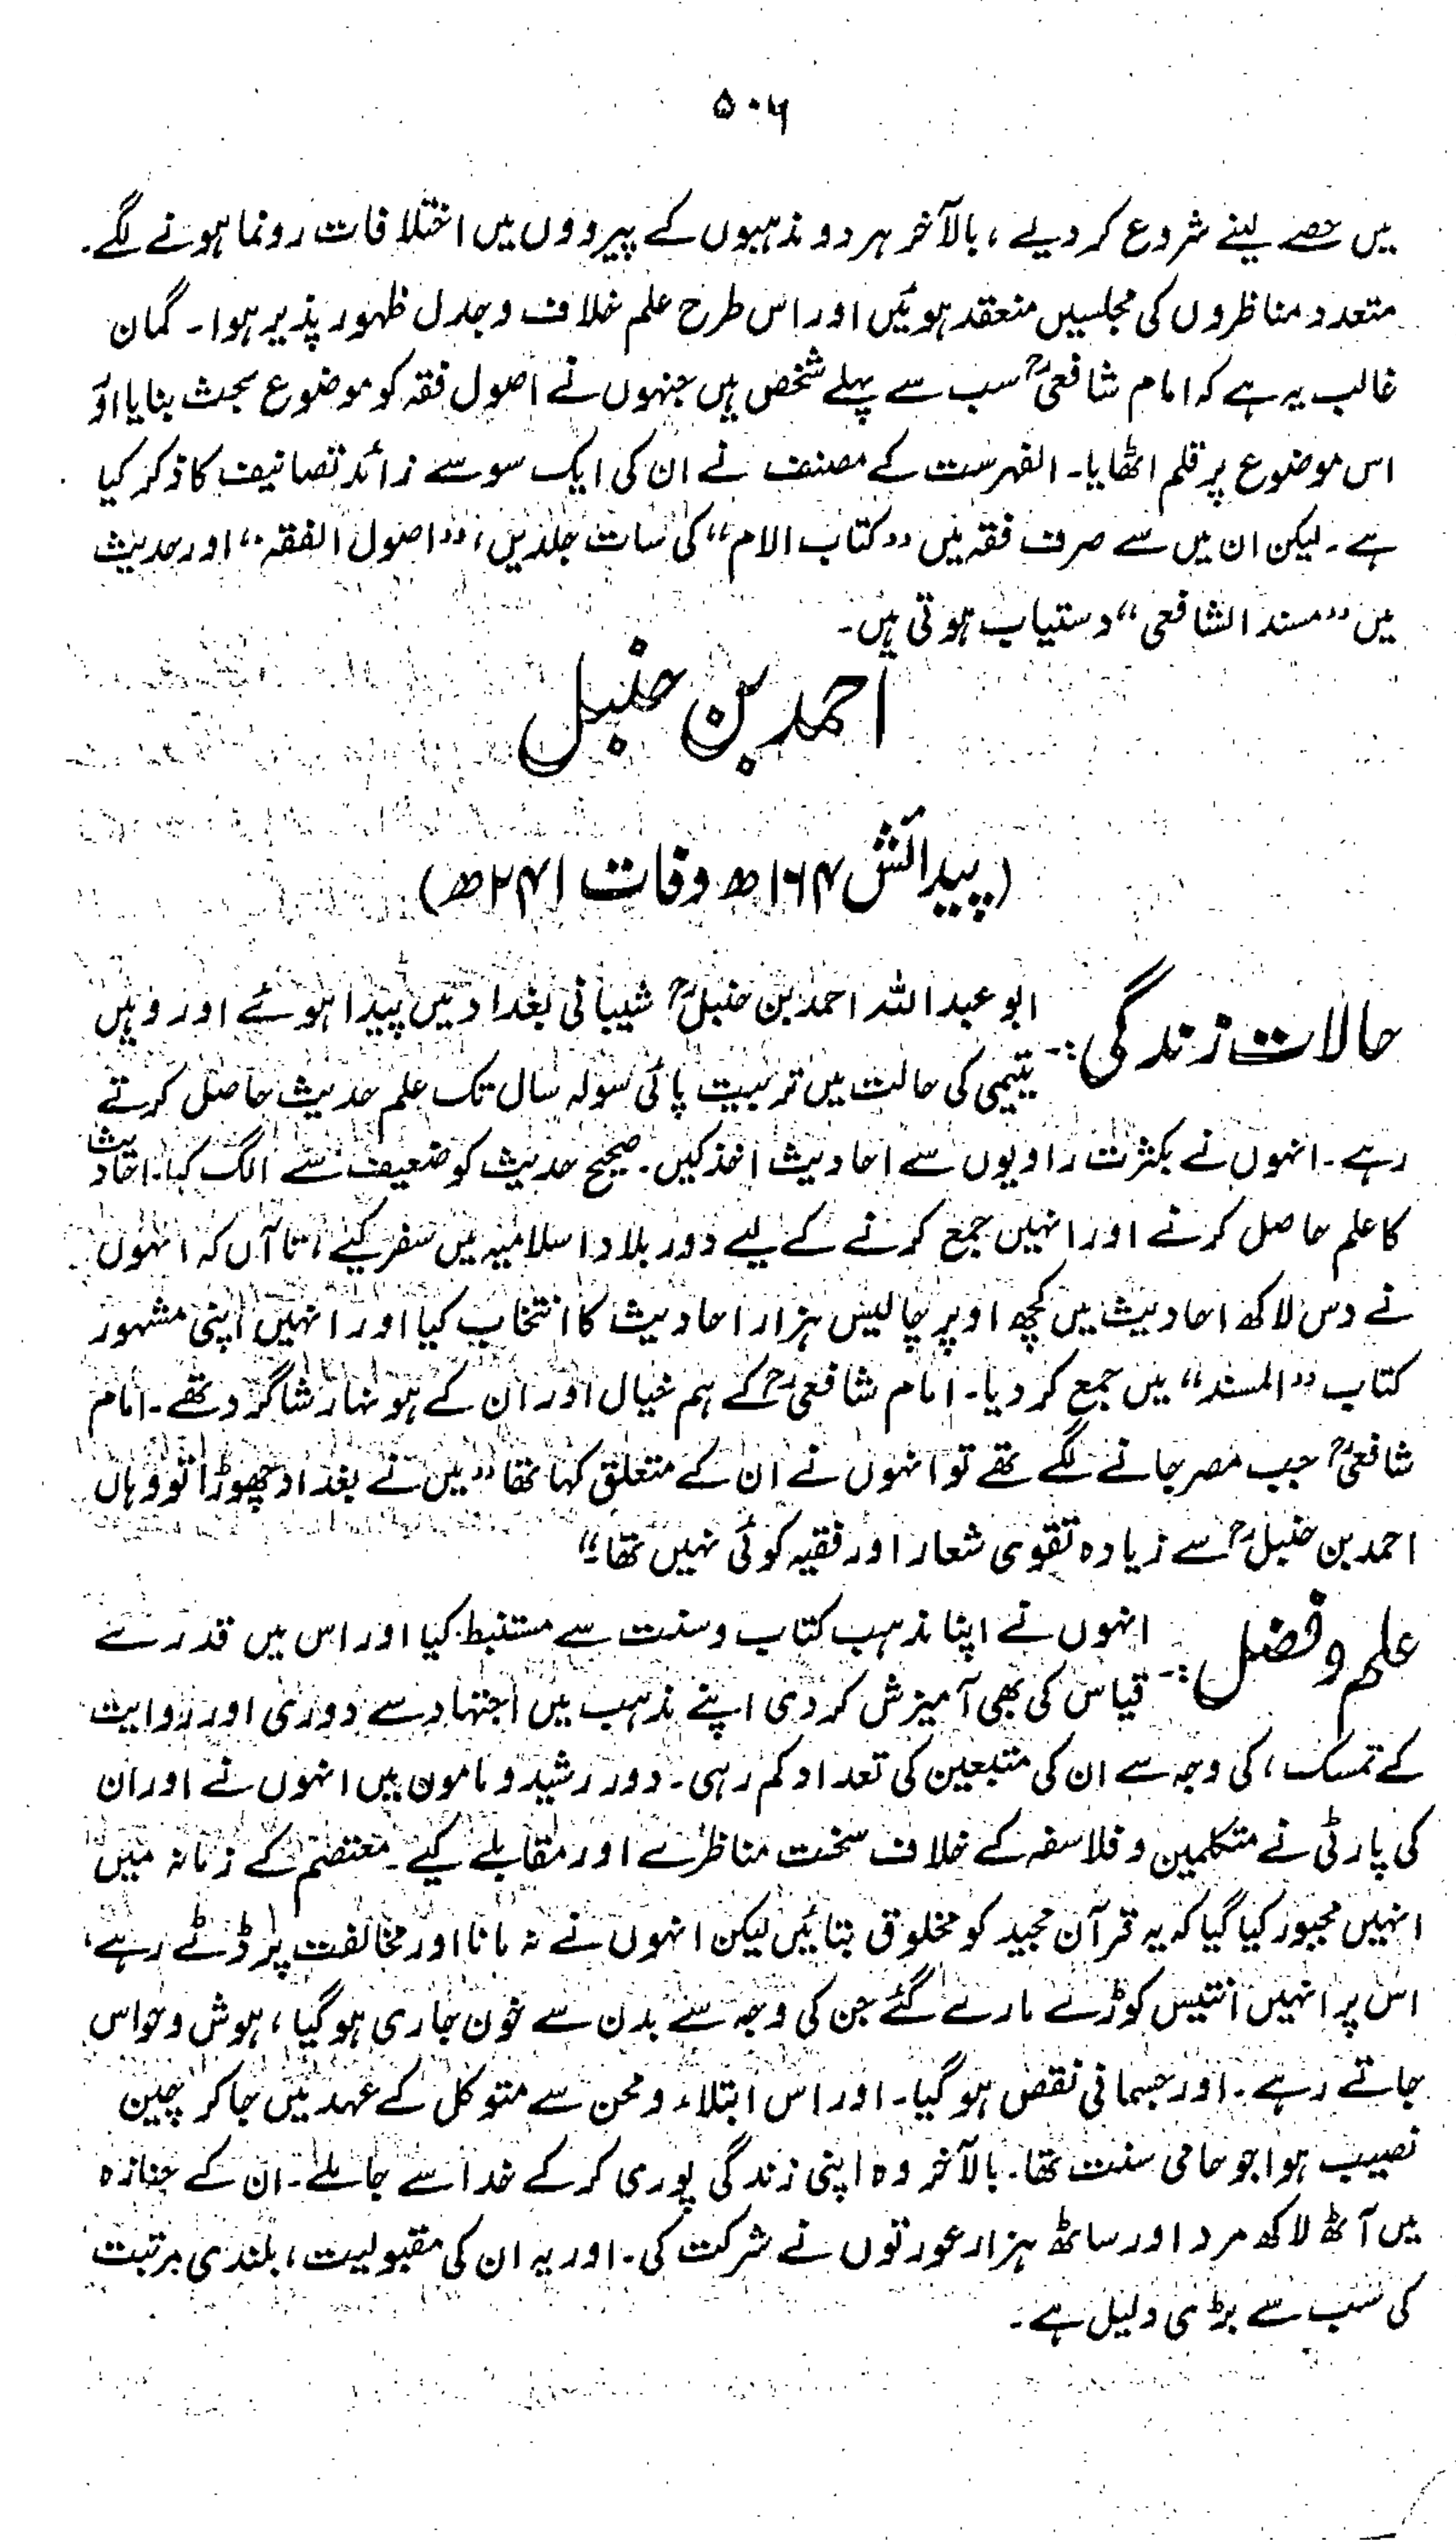 ۵۰۶
میں حصے لینے شروع کر دیے، بالآخر ہر دو مذہبوں کے پیرووں میں اختلافات رونما ہونے لگے۔
متعدد مناظروں کی مجلسیں منعقد ہوئیں اور اس طرح علم خلاف و جدل ظہور پذیر ہوا۔ گمان
غالب یہ ہے کہ امام شافعیؒ سب سے پہلے شخص ہیں جنہوں نے اصول فقہ کو موضوع بحث بنایا اور
اس موضوع پر قلم اٹھایا۔ الفہرست کے مصنف نے ان کی ایک سو سے زائد تصانیف کا ذکر کیا
ہے۔ لیکن ان میں سے صرف فقہ میں "کتاب الام" کی سات جلدیں، "اصول الفقہ" اور حدیث
میں "مسند الشافعی" دستیاب ہوتی ہیں۔
احمد بن حنبل
(پیدائش ۱۶۴ھ وفات ۲۴۱ھ)
حالات زندگی:- ابو عبد اللہ احمد بن حنبلؒ شیبانی بغداد میں پیدا ہوئے اور وہیں
یتیمی کی حالت میں تربیت پائی سولہ سال تک علم حدیث حاصل کرتے
رہے۔ انہوں نے بکثرت راویوں سے احادیث اخذ کیں۔ صحیح حدیث کو ضعیف سے الگ کیا۔ احادیث
کا علم حاصل کرنے اور انہیں جمع کرنے کے لیے دور بلاد اسلامیہ میں سفر کیے، تا آں کہ انہوں
نے دس لاکھ احادیث میں کچھ اوپر چالیس ہزار احادیث کا انتخاب کیا اور انہیں اپنی مشہور
کتاب "المسند" میں جمع کر دیا۔ امام شافعیؒ کے ہم خیال اور ان کے ہونہار شاگرد تھے۔ امام
شافعیؒ جب مصر جانے لگے تھے تو انہوں نے ان کے متعلق کہا تھا "میں نے بغداد چھوڑا تو وہاں
احمد بن حنبلؒ سے زیادہ تقوی شعار اور فقیہ کوئی نہیں تھا۔"
علم و فضل:- انہوں نے اپنا مذہب کتاب و سنت سے مستنبط کیا اور اس میں قدرے
قیاس کی بھی آمیزش کر دی اپنے مذہب میں اجتہاد سے دوری اور روایت
کے تمسک، کی وجہ سے ان کی متبعین کی تعداد کم رہی۔ دور رشید و مامون میں انہوں نے اور ان
کی پارٹی نے متکلمین و فلاسفہ کے خلاف سخت مناظرے اور مقابلے کیے۔ معتصم کے زمانہ میں
انہیں مجبور کیا گیا کہ یہ قرآن مجید کو مخلوق بتائیں لیکن انہوں نے نہ مانا اور مخالفت پر ڈٹے رہے،
اس پر انہیں انتیس کوڑے مارے گئے جن کی وجہ سے بدن سے خون جاری ہو گیا، ہوش و حواس
جاتے رہے۔ اور جسمانی نقص ہو گیا۔ اور اس ابتلاء و محن سے متوکل کے عہد میں جا کر چین
نصیب ہوا جو حامی سنت تھا۔ بالآخر وہ اپنی زندگی پوری کر کے خدا سے جا ملے۔ ان کے جنازہ
میں آٹھ لاکھ مرد اور ساٹھ ہزار عورتوں نے شرکت کی۔ اور یہ ان کی مقبولیت، بلندی مرتبت
کی سب سے بڑی دلیل ہے۔